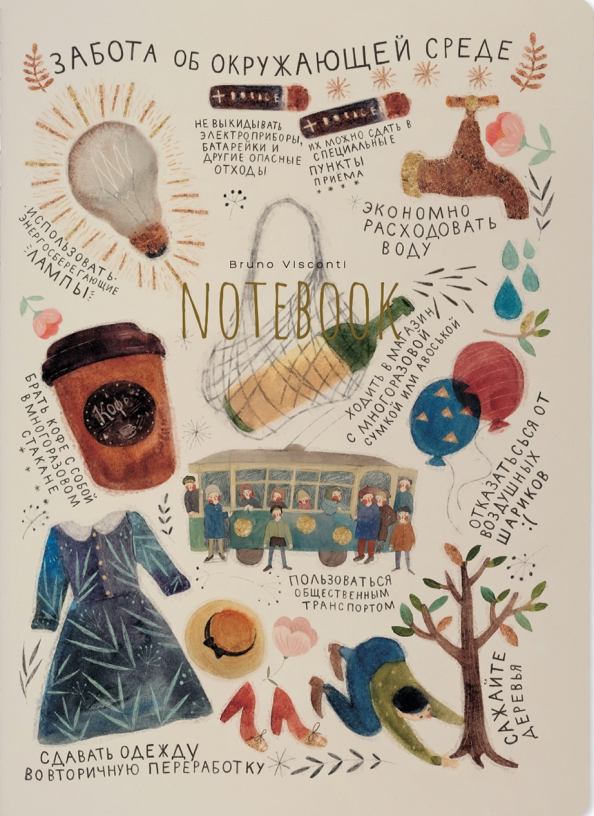 ЗАБОТА ОБ ОКРУЖАЮЩЕЙ СРЕДЕ
НЕ ВЫКИДЫВАТЬ
ЭЛЕКТРОПРИБОРЫ,
БАТАРЕЙКИ И
ДРУГИЕ ОПАСНЫЕ
ОТХОДЫ
ИХ МОЖНО СДАТЬ В
СПЕЦИАЛЬНЫЕ
ПУНКТЫ
ПРИЕМА
ЭКОНОМНО
РАСХОДОВАТЬ
ВОДУ
ИСПОЛЬЗОВАТЬ
ЭНЕРГОСБЕРЕГАЮЩИЕ
ЛАМПЫ
Bruno Visconti
NOTEBOOK
ХОДИТЬ В МАГАЗИН
С МНОГОРАЗОВОЙ
СУМКОЙ ИЛИ АВОСЬКОЙ
БРАТЬ КОФЕ С СОБОЙ
В МНОГОРАЗОВОМ
СТАКАНЕ
Кофе
ОТКАЗАТЬСЬСЯ ОТ
ВОЗДУШНЫХ
ШАРИКОВ
:(
ПОЛЬЗОВАТЬСЯ
ОБЩЕСТВЕННЫМ
ТРАНСПОРТОМ
САЖАЙТЕ
ДЕРЕВЬЯ
СДАВАТЬ ОДЕЖДУ
ВО ВТОРИЧНУЮ ПЕРЕРАБОТКУ